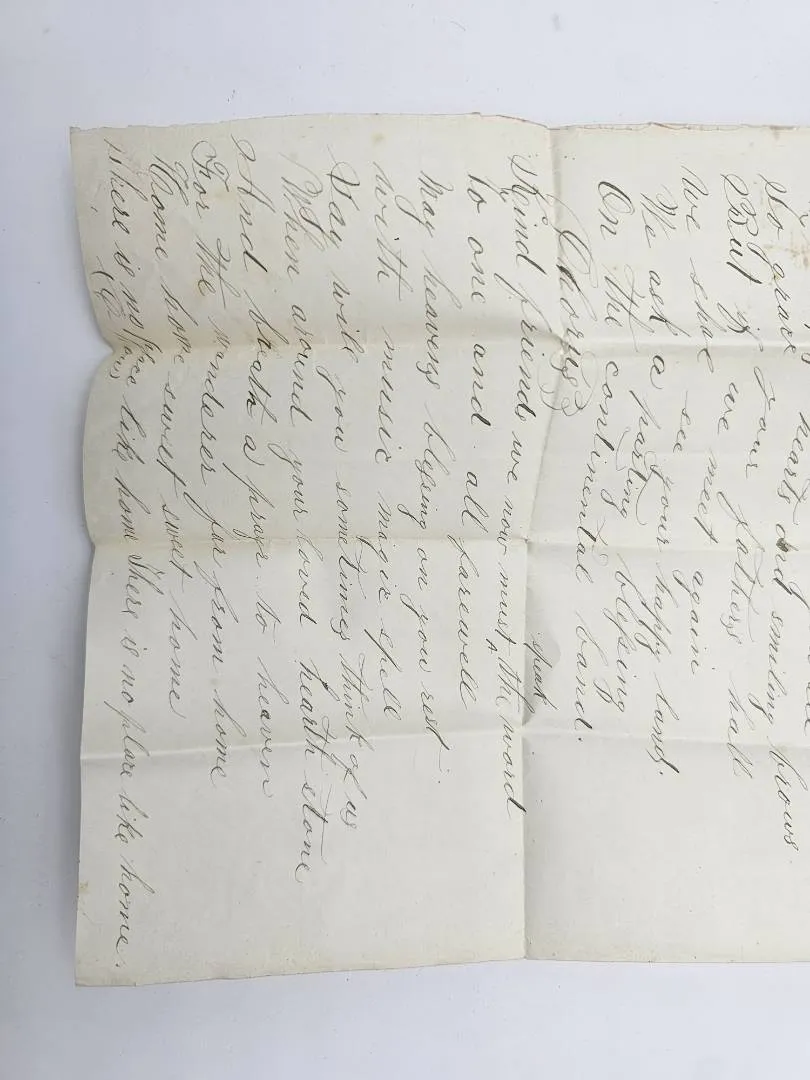 So grave hearts and smiling brows
But if your fathers hall
We shal we meet again
We ask a see your happy land.
On the parting blessing
continental band.
Chorus
Kind friends we now must speak the word
to one and all farewell
may heavens blessing on you rest
with music magic spell
Say will you sometimes think of us
When around your loved hearth stone
And breath a prayr to heaven
For the wanderer far from home
Home home sweet sweet home
There is no place like home There is no place like home.